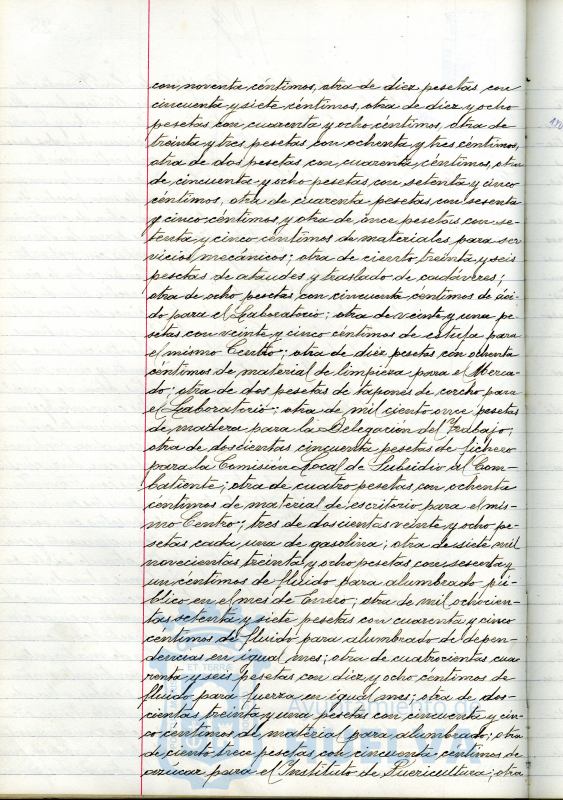 con noventa céntimos, otra de diez pesetas con
cincuenta y siete céntimos, otra de diez y ocho
pesetas con cuarenta y ocho céntimos, otra de
treinta y tres pesetas con ochenta y tres céntimos,
otra de dos pesetas con cuarenta céntimos, otra
de cincuenta y ocho pesetas con setenta y cinco
céntimos, otra de cuarenta pesetas con sesenta
y cinco céntimos y otra de once pesetas con se-
tenta y cinco céntimos de materiales para ser
vicios mecánicos; otra de ciento treinta y seis
pesetas de ataudes y traslado de cadáveres;
otra de ocho pesetas con cincuenta céntimos de áci-
do para el Laboratorio; otra de veinte y una pe-
setas con veinte y cinco céntimos de estufa para
el mismo Centro; otra de diez pesetas con ochenta
céntimos de material de limpieza para el Merca-
do; otra de dos pesetas de tapones de corcho para
el Laboratorio; otra de mil ciento once pesetas
de madera para la Delegación del Trabajo;
otra de doscientas cincuenta pesetas de fichero
para la Comisión Local de Subsidio al Com-
batiente; otra de cuatro pesetas con ochenta
céntimos de material de escritorio para el mis-
mo Centro; tres de doscientas veinte y ocho pe-
setas cada una de gasolina; otra de siete mil
novecientas treinta y ocho pesetas con sesenta y
un céntimos de fluido para alumbrado pú-
blico en el mes de Enero; otra de mil ochocien-
tas setenta y siete pesetas con cuarenta y cinco
céntimos de fluido para alumbrado de depen-
dencias en igual mes; otra de cuatrocientas cua
renta y seis pesetas con diez y ocho céntimos de
fluido para fuerza en igual mes; otra de dos-
cientas treinta y una pesetas con cincuenta y cin-
co céntimos de material para alumbrado; otra
de ciento trece pesetas con cincuenta céntimos de
azúcar para el Instituto de Puericultura; otra
ET TERRÆ
Ayuntamiento de